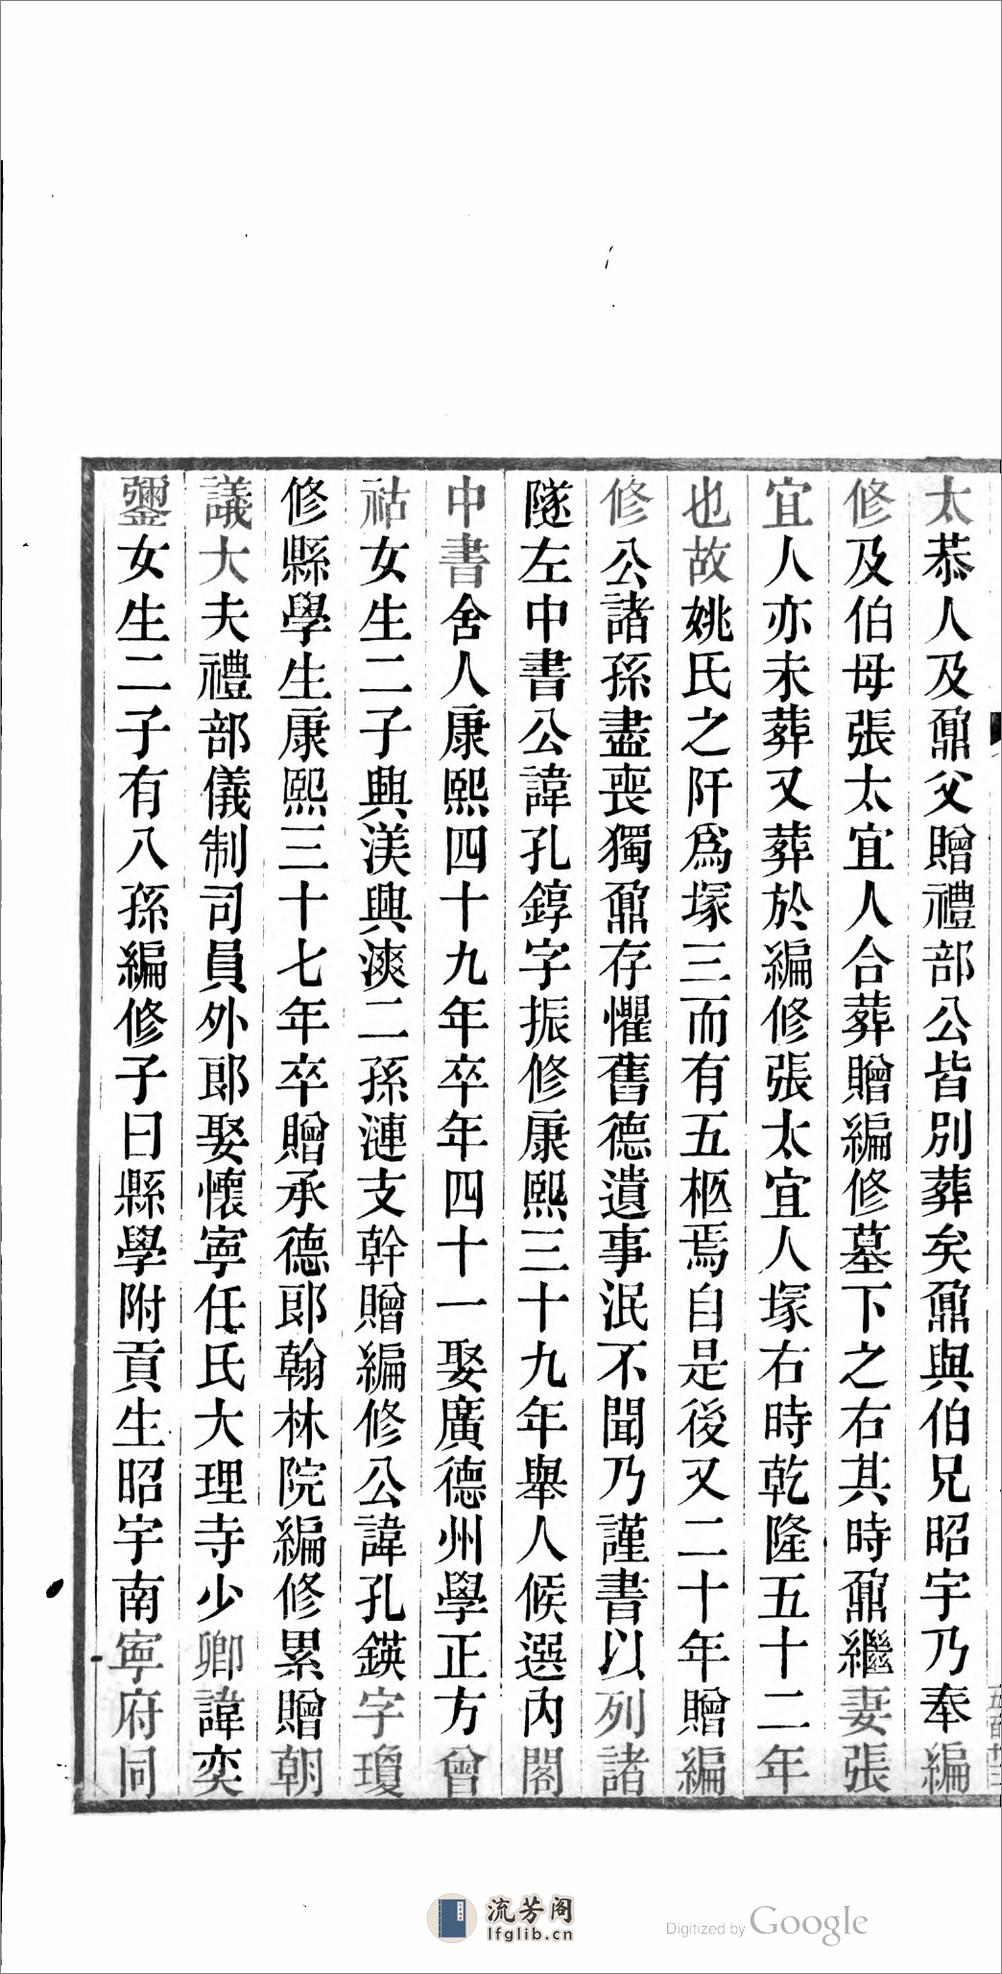 太恭人及鼐父贈禮部公皆別葬矣鼐與伯兄昭宇乃奉編
修及伯母張太宜人合葬贈編修墓下之右其時鼐繼妻張
宜人亦未葬又葬於編修張太宜人塚右時乾隆五十二年
也故姚氏之阡爲塚三而有五柩焉自是後又二十年贈編
修公諸孫盡喪獨鼐存懼舊德遺事泯不聞乃謹書以列諸
隧左中書公諱孔錞字振修康熙三十九年舉人候選內閣
中書舍人康熙四十九年卒年四十一娶廣德州學正方曾
祜女生二子興渼興㵎二孫漣支幹贈編修公諱孔鍈字瓊
修縣學生康熙三十七年卒贈承德郎翰林院編修累贈朝
議大夫禮部儀制司員外郎娶懷寧任氏大理寺少卿諱奕
鑋女生二子有八孫編修子曰縣學附貢生昭宇南寧府同
流芳阁
lfglib.cn
Digitized by Google